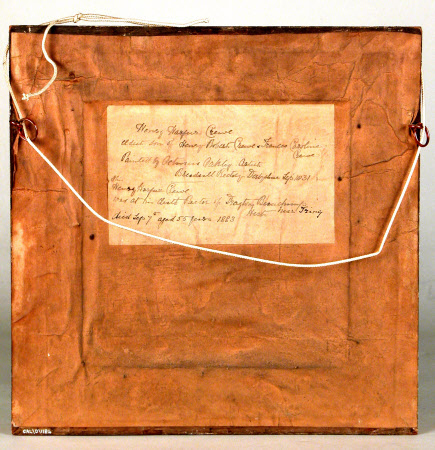 Henry Harpur Crewe
eldest son of Henry Robert Crewe & Frances Caroline
Crewe
Painted by Octavius Oakley Artist
Breadsall Rectory Derbyshire Sep. 1831
Henry Harpur Crewe
was at his death Rector of Drayton Beauchamp
near Tring
died Sep. 7th aged 55 years 1883